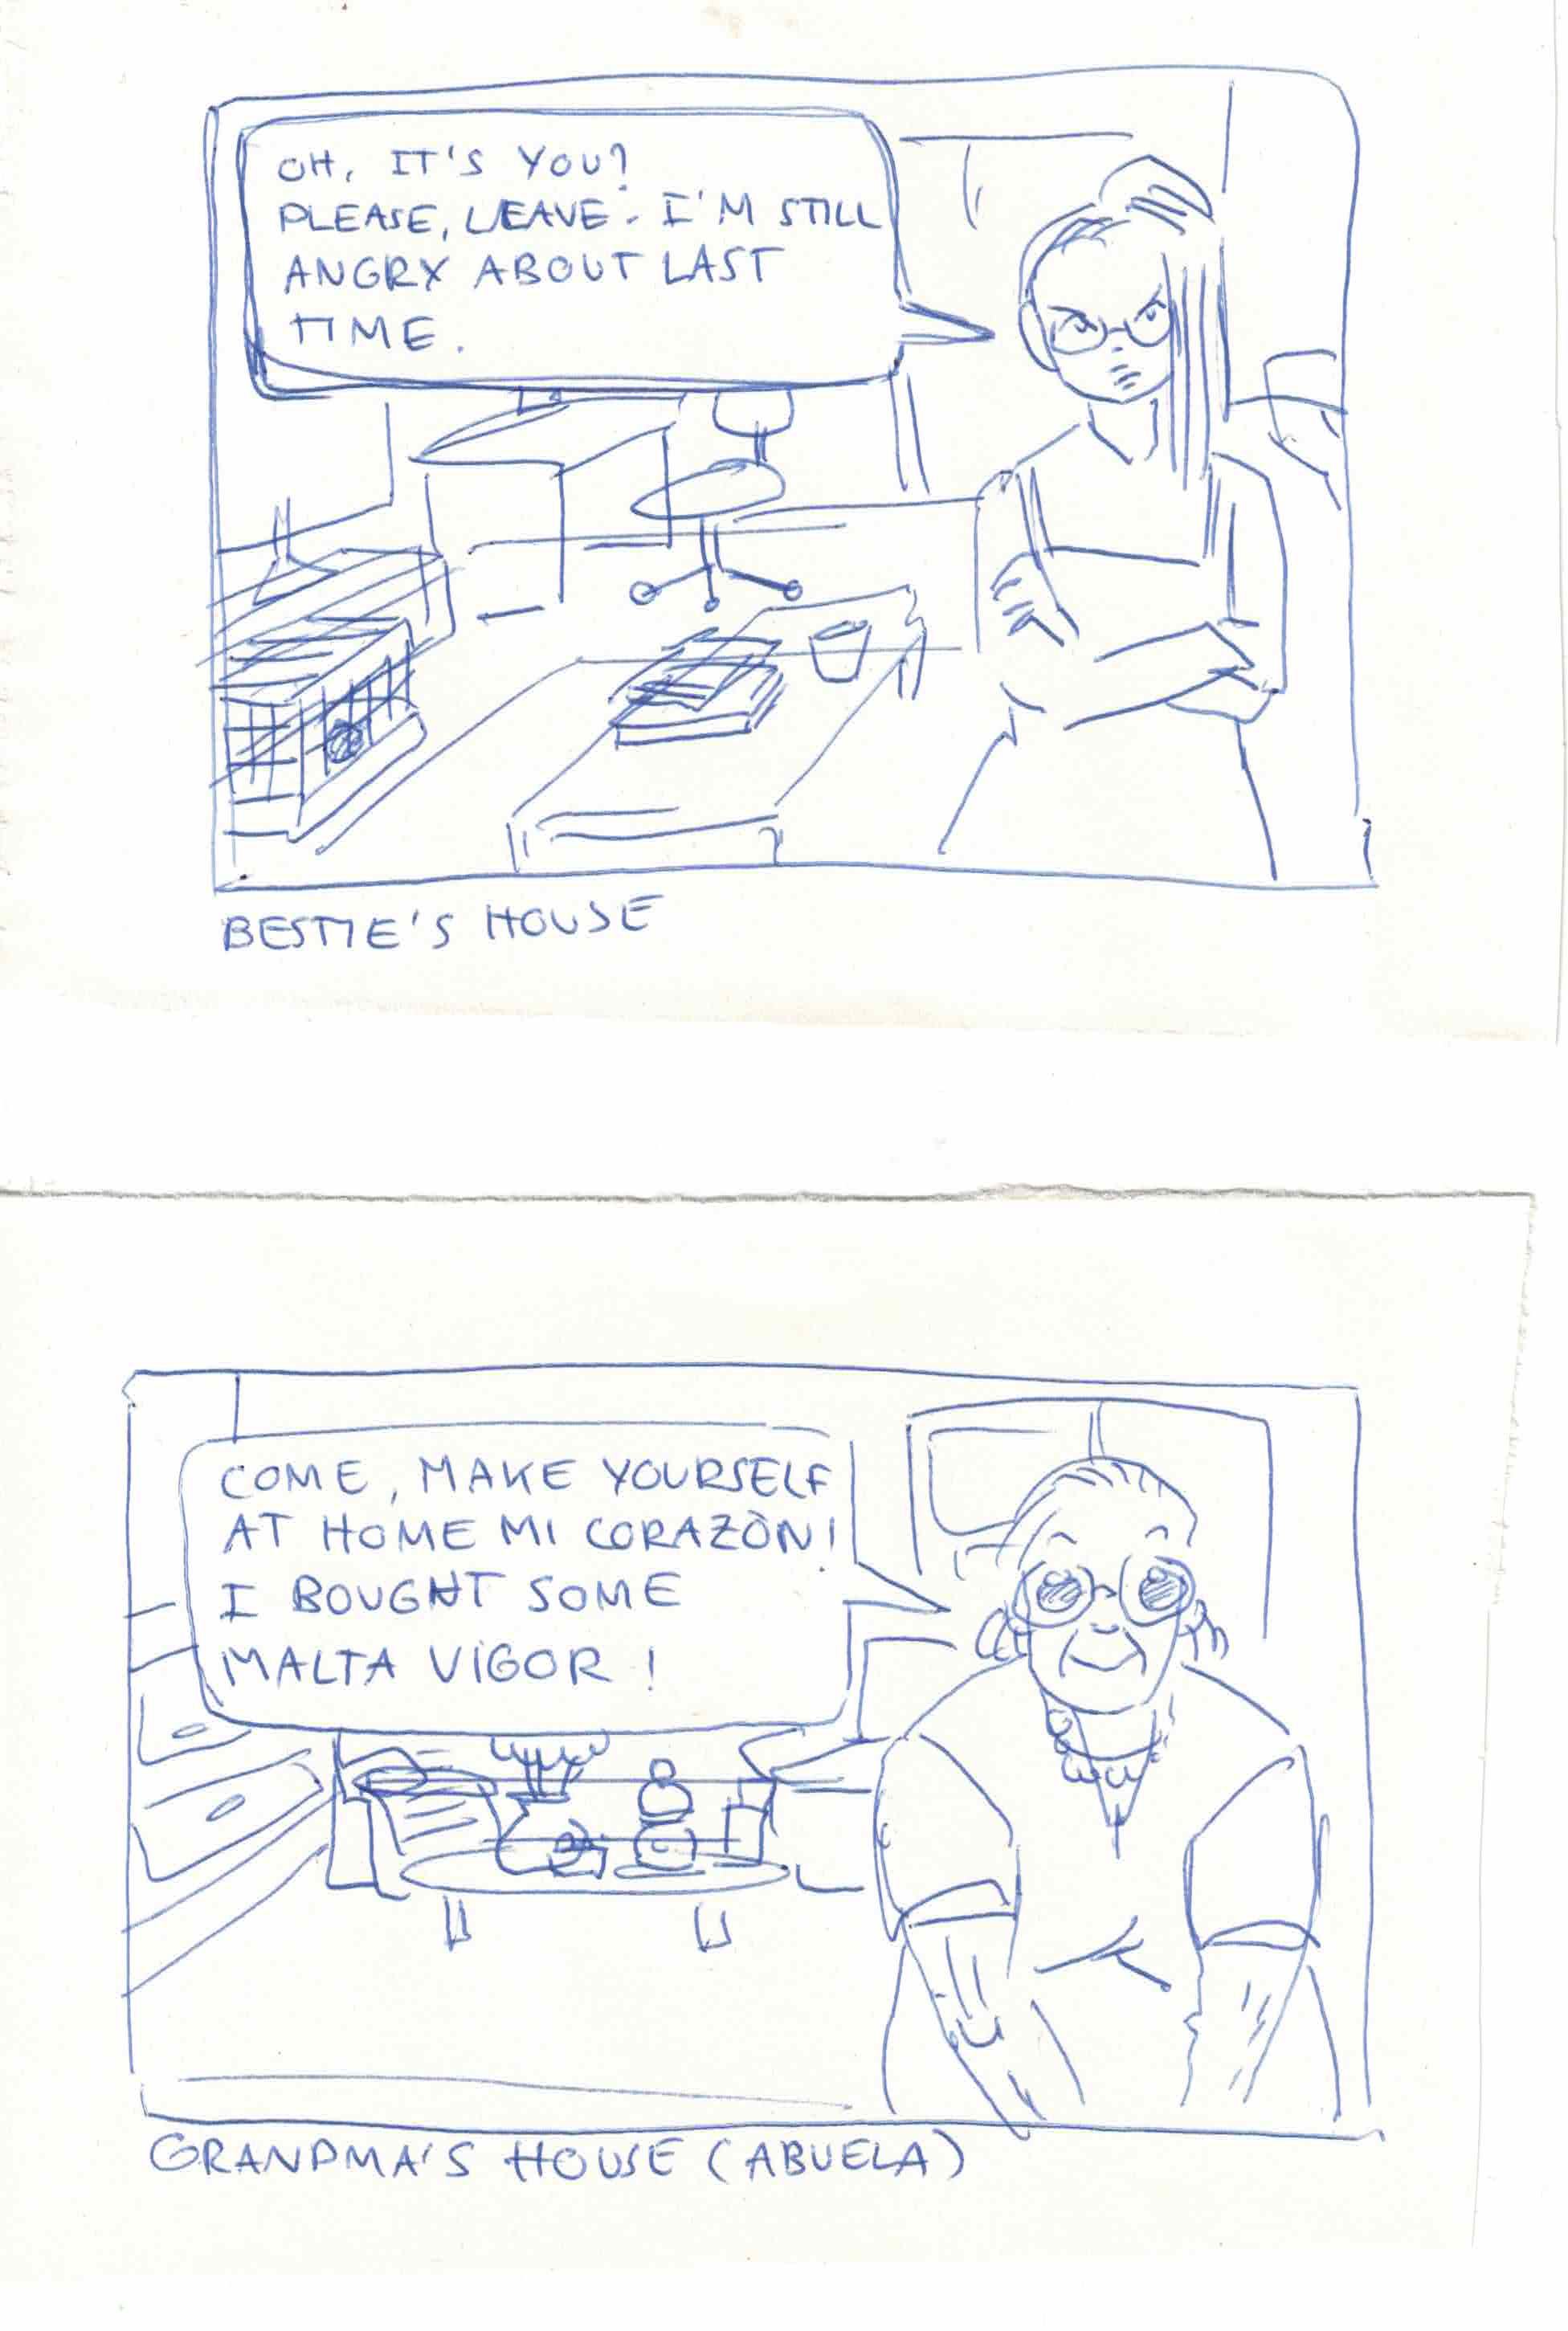 OH, IT'S YOU?
PLEASE, LEAVE. I'M STILL
ANGRY ABOUT LAST
TIME.
BESTIE'S HOUSE
COME, MAKE YOURSELF
AT HOME MI CORAZÒN!
I BOUGHT SOME
MALTA VIGOR!
GRANDMA'S HOUSE (ABUELA)